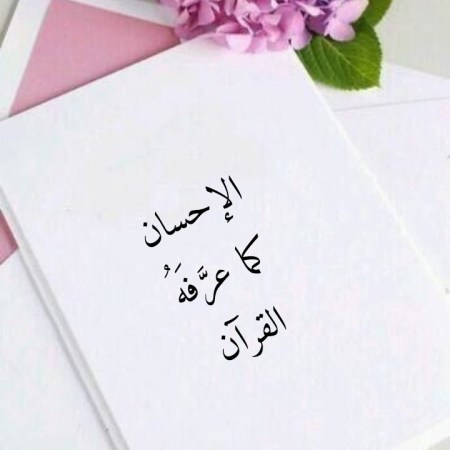 الإحسان
كما عرَّفَهُ
القرآن